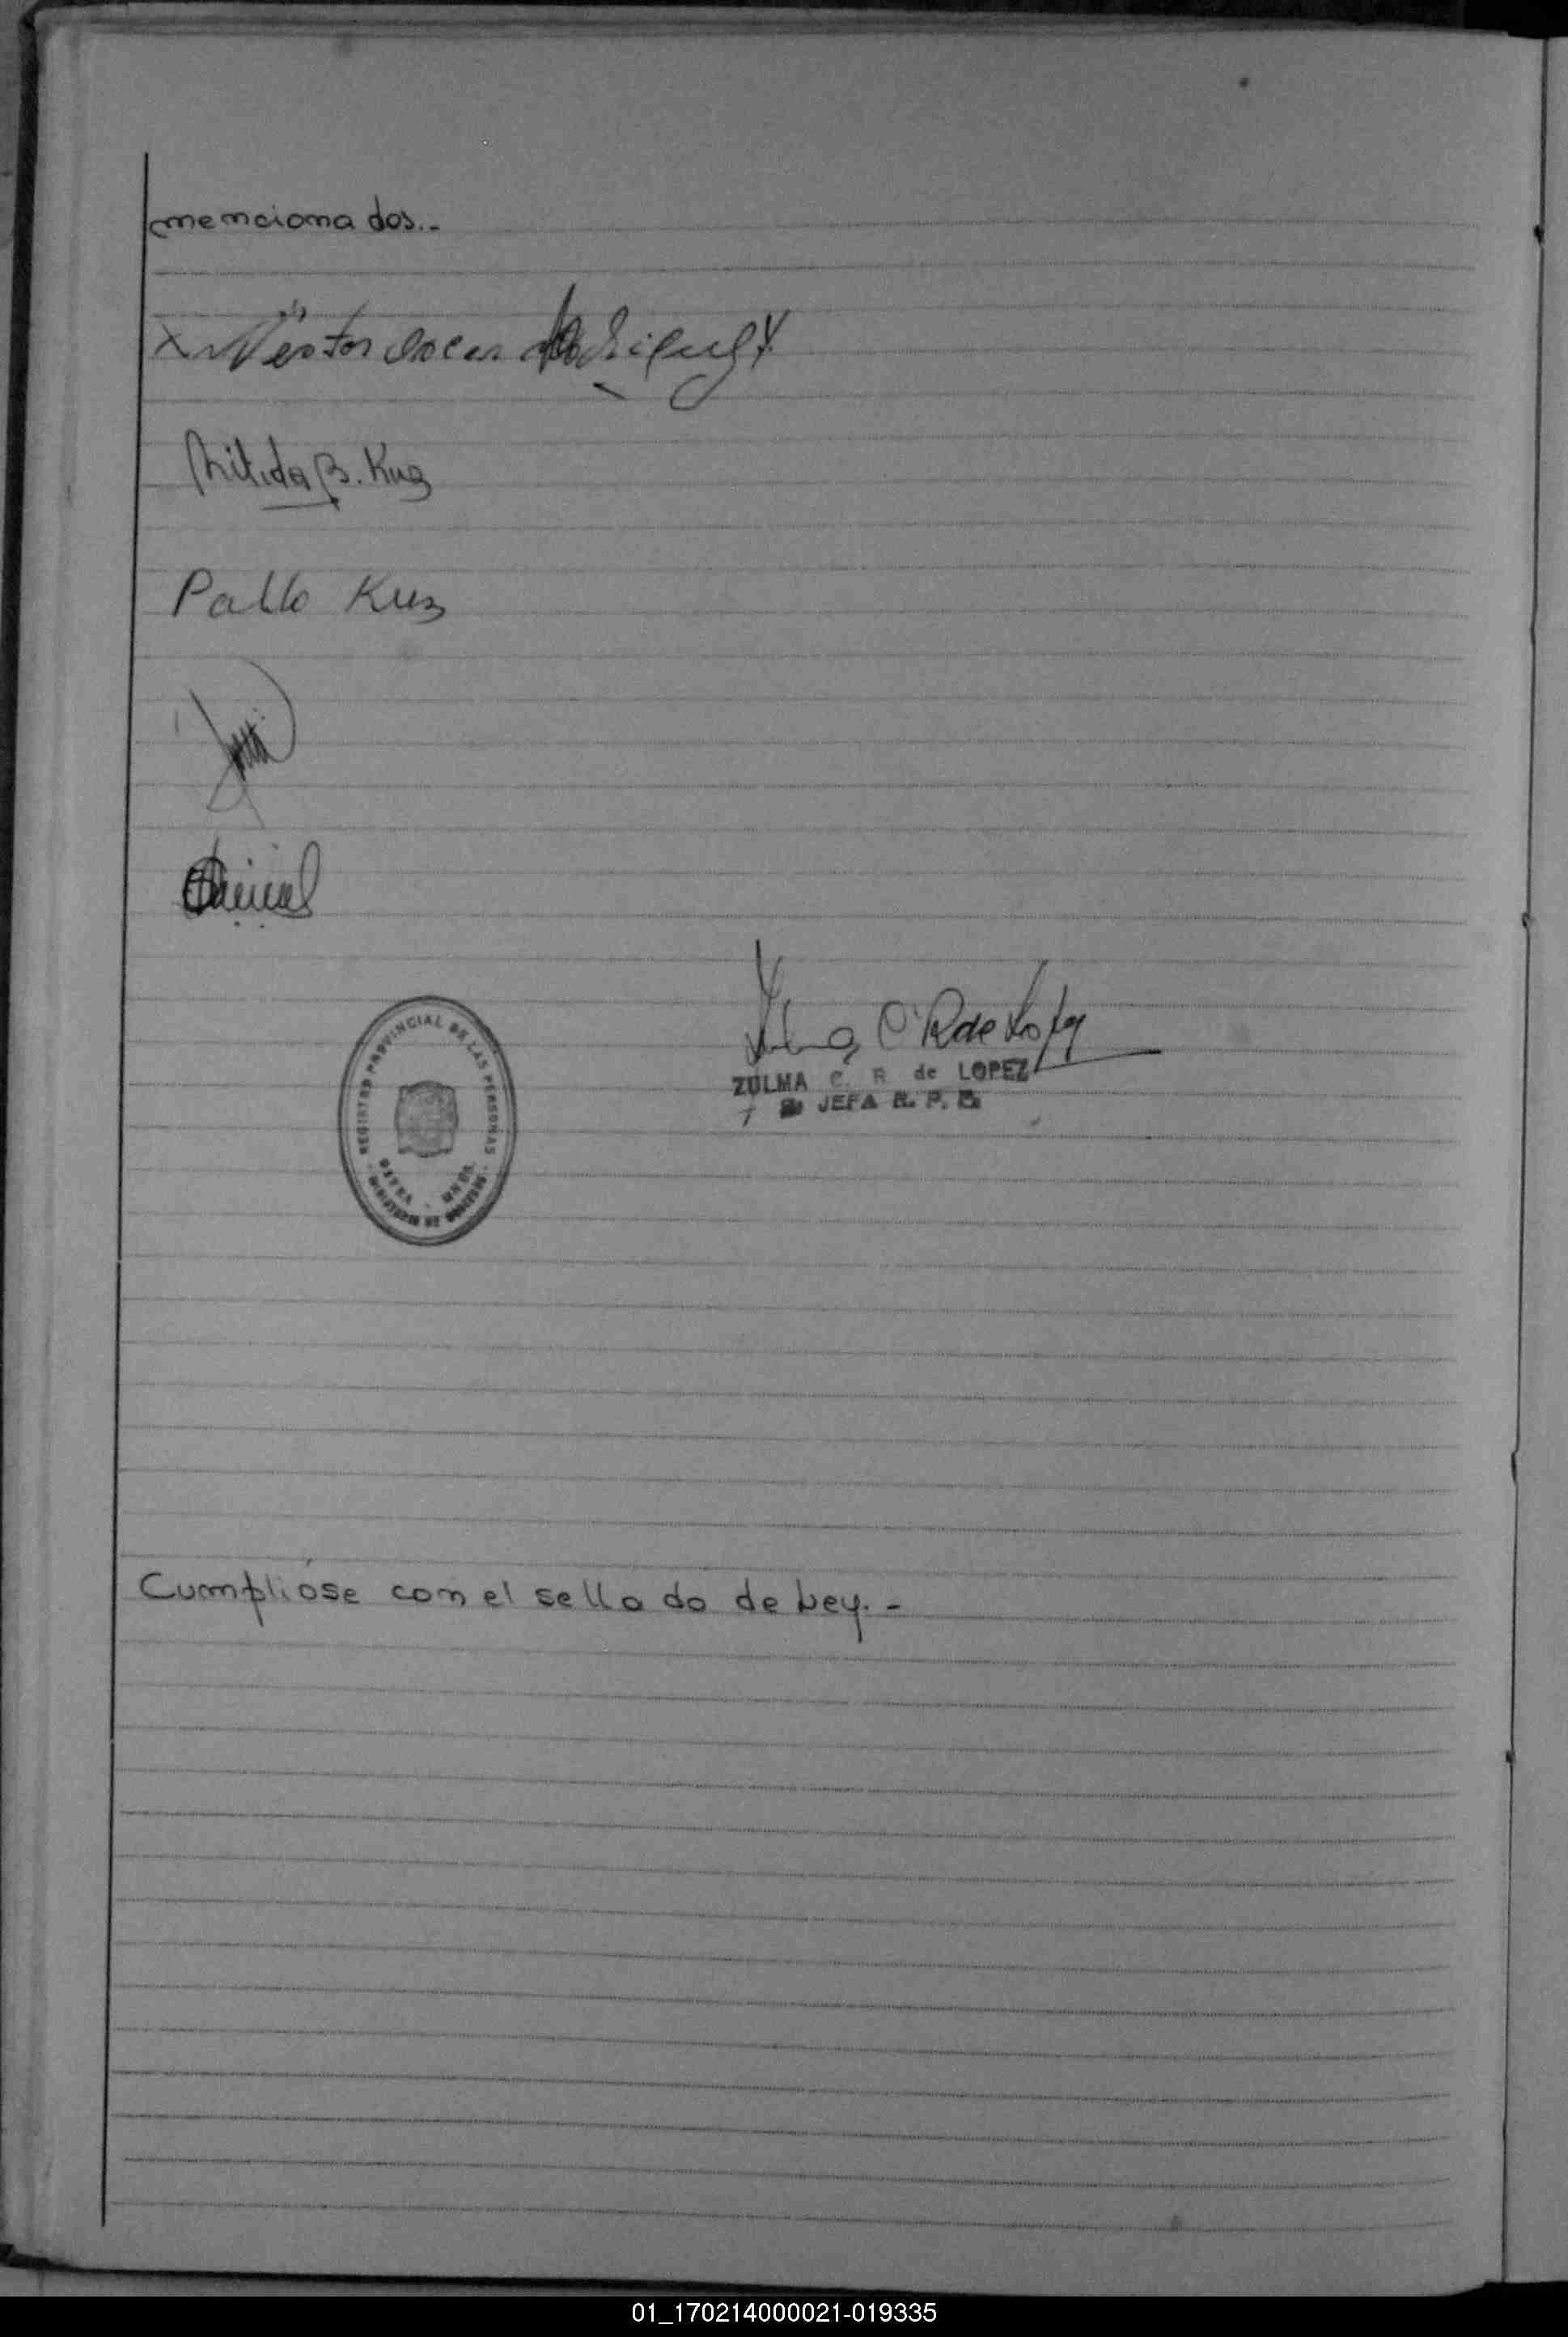 mencionados.-
X Néstor Oscar Rodriguez
Nilida B. Kuz
Pablo Kuz
REGISTRO PROVINCIAL DE LAS PERSONAS
MINISTERIO DE GOBIERNO
Zulma C R de Lopez
ZULMA C. R de LOPEZ
JEFA R. P. P.
Cumplióse con el sellado de Ley.-
01_170214000021-019335